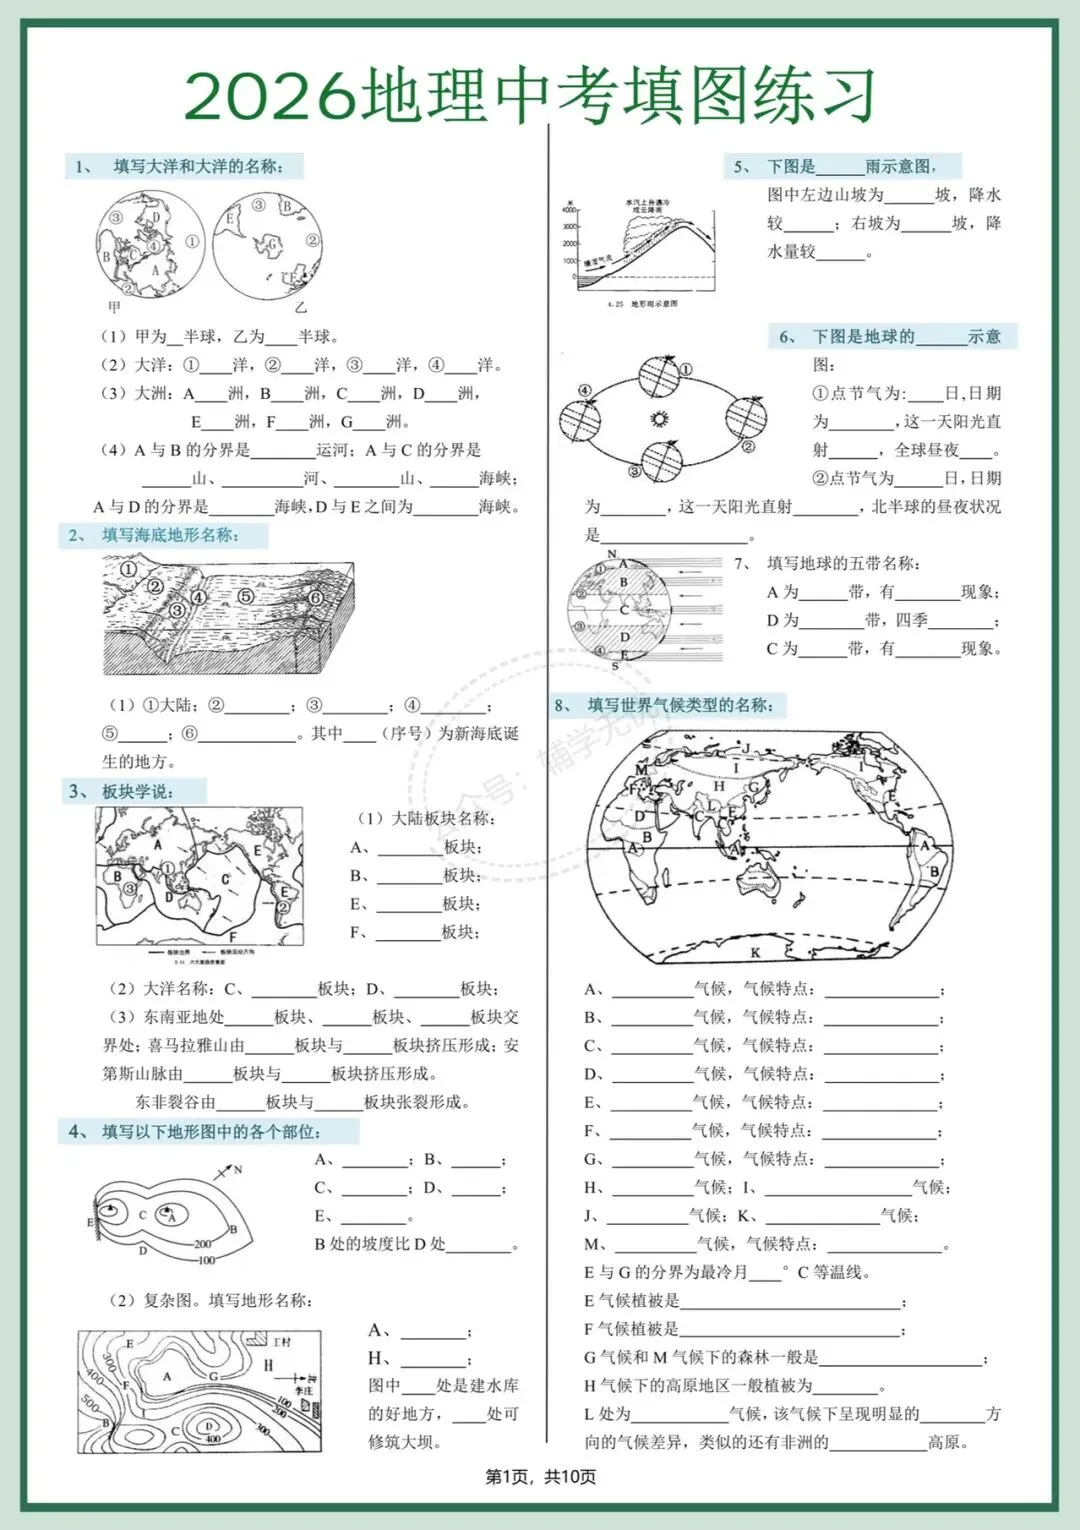 2026地理中考填图练习
1、 填写大洋和大洋的名称：
③ D ① B C ④ A ②
E ③ B G ② F
甲 乙
（1）甲为__半球，乙为____半球。
（2）大洋：①____洋，②____洋，③____洋，④____洋。
（3）大洲：A____洲，B____洲，C____洲，D____洲，
E____洲，F____洲，G____洲。
（4）A 与 B 的分界是________运河；A 与 C 的分界是
______山、__________河、________山、______海峡；
A 与 D 的分界是________海峡，D 与 E 之间为________海峡。
2、 填写海底地形名称：
① ② ③ ④ ⑤ ⑥
（1）①大陆；②________；③________；④________；
⑤______；⑥____________。其中____（序号）为新海底诞
生的地方。
3、 板块学说：
A B C D E E F ① ② ③
板块边界 板块运动方向
3.11 六大板块示意图
（1）大陆板块名称：
A、________板块；
B、________板块；
E、________板块；
F、________板块；
（2）大洋名称：C、________板块；D、________板块；
（3）东南亚地处______板块、______板块、______板块交
界处；喜马拉雅山由______板块与______板块挤压形成；安
第斯山脉由______板块与______板块挤压形成。
东非裂谷由______板块与______板块张裂形成。
4、 填写以下地形图中的各个部位：
N E C A B D 200 100
A、________；B、______；
C、________；D、______；
E、________。
B 处的坡度比 D 处________。
（2）复杂图。填写地形名称：
E 王村 300 H 400 A G 北 F 李庄 500 100 200 B C D 300 400
A、________；
H、________；
图中____处是建水库
的好地方，____处可
修筑大坝。
5、 下图是______雨示意图，
图中左边山坡为______坡，降水
较______；右坡为______坡，降
水量较______。
米 水汽上升遇冷
成云降雨
4000
3000
2000
1000
0
暖湿气流
4.25 地形雨示意图
6、 下图是地球的______示意
图：
① ② ③ ④
①点节气为:____日,日期
为________,这一天阳光直
射______，全球昼夜____。
②点节气为______日,日期
为________，这一天阳光直射________，北半球的昼夜状况
是__________________。
7、 填写地球的五带名称：
N ① A ② B C ③ D ④ E S
A 为______带，有________现象；
D 为________带，四季________；
C 为______带，有________现象。
8、 填写世界气候类型的名称：
J I M H G F L D C E B A A I E A B K
A、__________气候，气候特点：______________；
B、__________气候，气候特点：______________；
C、__________气候，气候特点：______________；
D、__________气候，气候特点：______________；
E、__________气候，气候特点：______________；
F、__________气候，气候特点：______________；
G、__________气候，气候特点：______________；
H、__________气候；I、__________________气候；
J、__________气候；K、______________气候；
M、__________气候，气候特点：______________。
E 与 G 的分界为最冷月____°C 等温线。
E 气候植被是___________________________；
F 气候植被是___________________________；
G 气候和 M 气候下的森林一般是____________________；
H 气候下的高原地区一般植被为________。
L 处为____________气候，该气候下呈现明显的________方
向的气候差异，类似的还有非洲的____________高原。
公众号：辅学无忧
第1页，共10页